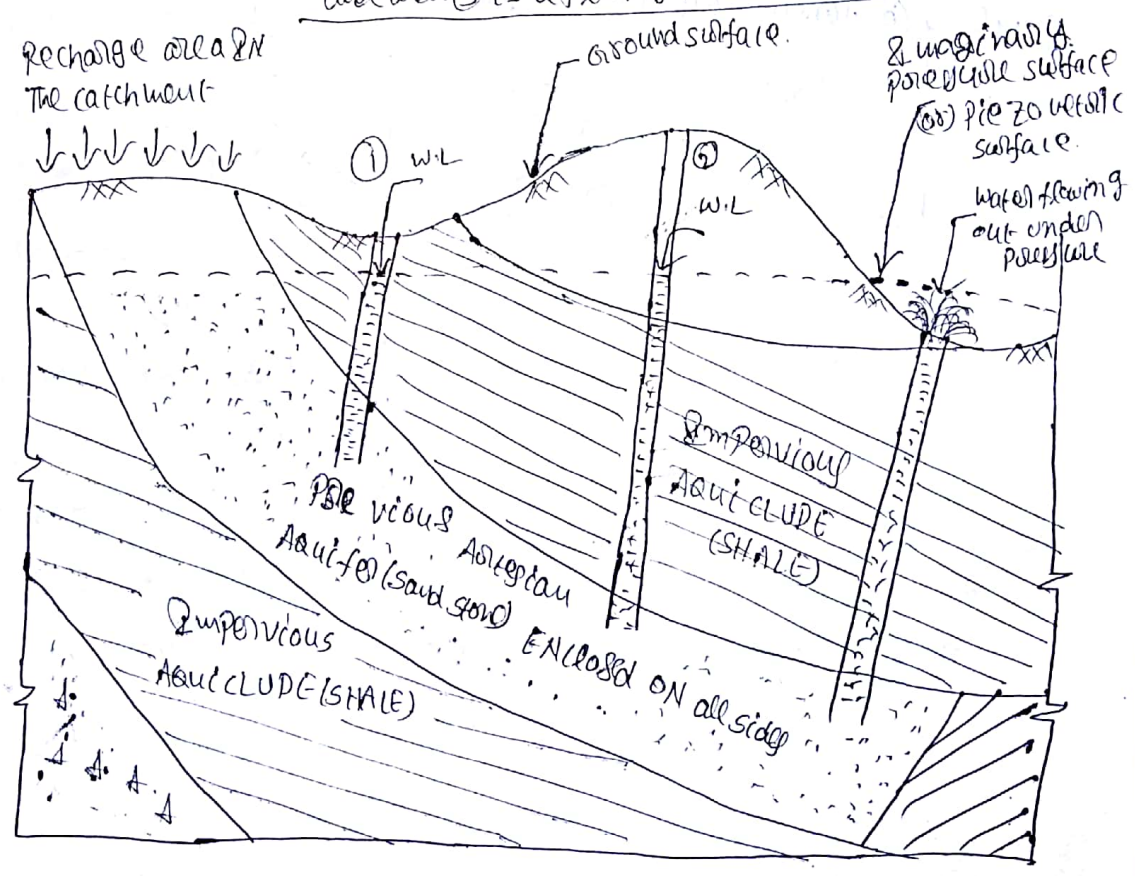 Recharge area IN
The catchment
Ground surface.
Imaginary
pressure surface
(or) Piezometric
surface.
① W.L
②
W.L
Water flowing
out under
pressure
Impervious
AQUICLUDE
(SHALE)
PER vious Artesian
Aquifer (Sand stone)
ENClosed ON all sides
Impervious
AQUICLUDE (SHALE)